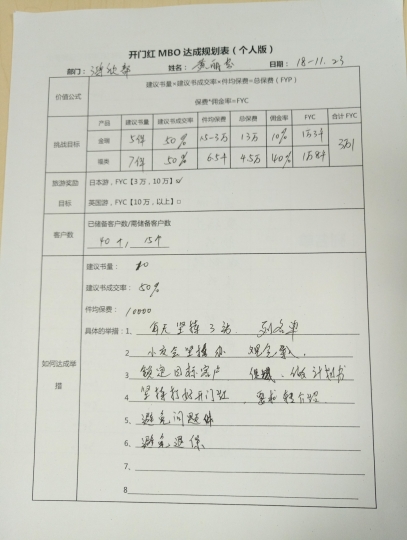 开门红 MBO 达成规划表（个人版）
部门： 姓名： 日期： 18-11.23
价值公式
建议书量×建议书成交率×件均保费=总保费（FYP）
保费*佣金率=FYC
挑战目标
产品 建议书量 建议书成交率 件均保费 总保费 佣金率 FYC 合计 FYC
金瑞 5件 50% 1.5-3万 13万 10% 1万3千
福类 7件 50% 6.5千 4.5万 40% 1万8千 3万1
旅游奖励
目标
日本游，FYC【3万，10万】☑
英国游，FYC【10万，以上】□
客户数
已储备客户数/需储备客户数
40个，15个
如何达成举
措
建议书量： 10
建议书成交率： 50%
件均保费： 10000
具体的举措：1、每天坚持3访 列名单
2、小交会坚持办
3、锁定目标客户 做计划书
4、坚持打好开门红
5、避免问题件
6、避免退保
7、
8